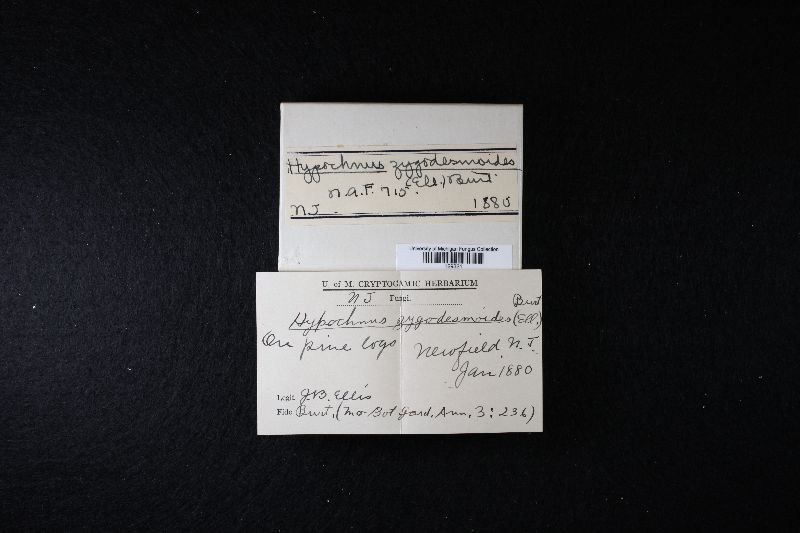 Hypochnus zygodesmoides
(Ell.) Burt.
N.A.F. 715.
NJ 1880
University of Michigan Fungus Collection
U. of M. CRYPTOGAMIC HERBARIUM
NJ Fungi.
Burt
Hypochnus zygodesmoides (Ell.)
On pine logs Newfield, N.J.
Jan 1880
Legit J.B. Ellis
Fide Burt, (Mo. Bot. Gard. Ann. 3: 236)